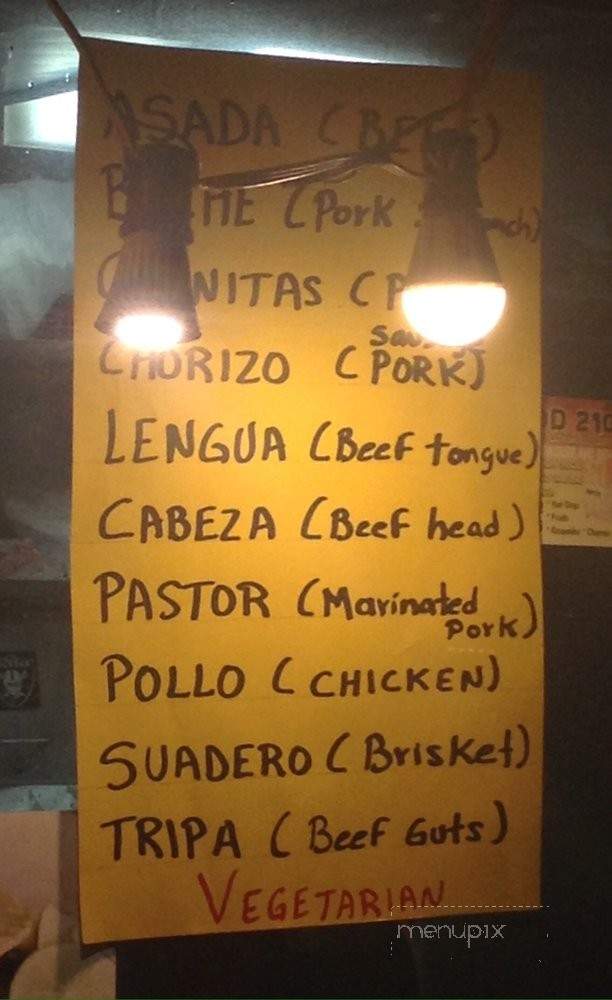 ASADA (BEEF)
(Pork
(
CHORIZO (PORK)
LENGUA (Beef tongue)
CABEZA (Beef head)
PASTOR (Marinated
Pork)
POLLO (CHICKEN)
SUADERO (Brisket)
TRIPA (Beef Guts)
VEGETARIAN
menupix